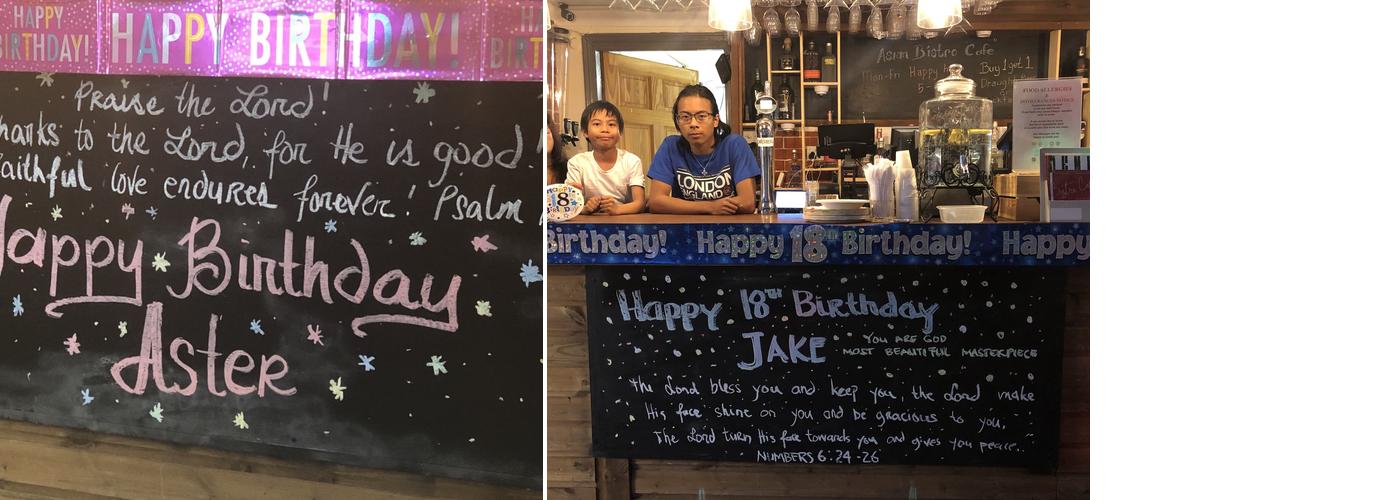 HAPPY BIRTHDAY!
HAPPY BIRTHDAY!
Praise the Lord!
thanks to the Lord, for He is good!
faithful love endures forever! Psalm
Happy Birthday
Aster
Asian Bistro Cafe
Mon-Fri Happy
Buy 1 get 1
5-
FOOD ALLERGIES
&
INTOLERANCES NOTICE
LONDON
ENGLAND
HAPPY
18
BIRTHDAY
Birthday! Happy 18th Birthday! Happy
Happy 18th Birthday
JAKE
YOU ARE GOD
MOST BEAUTIFUL MASTERPIECE
The Lord bless you and keep you, the Lord make
His face shine on you and be gracious to you,
The Lord turn His face towards you and gives you peace..
NUMBERS 6:24-26